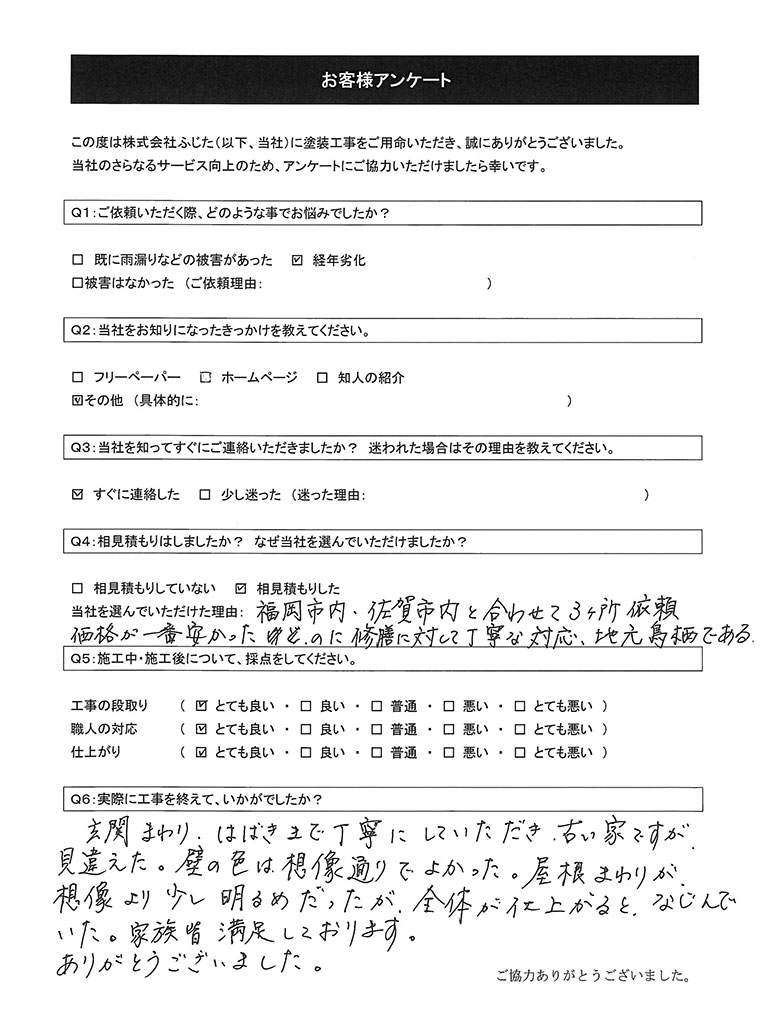 お客様アンケート
この度は株式会社ふじた(以下、当社)に塗装工事をご用命いただき、誠にありがとうございました。
当社のさらなるサービス向上のため、アンケートにご協力いただけましたら幸いです。
Q1:ご依頼いただく際、どのような事でお悩みでしたか?
□ 既に雨漏りなどの被害があった ☑ 経年劣化
□被害はなかった (ご依頼理由: )
Q2:当社をお知りになったきっかけを教えてください。
□ フリーペーパー □ ホームページ □ 知人の紹介
☑その他 (具体的に: )
Q3:当社を知ってすぐにご連絡いただきましたか? 迷われた場合はその理由を教えてください。
☑ すぐに連絡した □ 少し迷った (迷った理由: )
Q4:相見積もりはしましたか? なぜ当社を選んでいただけましたか?
□ 相見積もりしていない ☑ 相見積もりした
当社を選んでいただけた理由: 福岡市内・佐賀市内と合わせて3ヶ所依頼
価格が一番安かった のに修膳に対して丁寧な対応、地元鳥栖である.
Q5:施工中・施工後について、採点をしてください。
工事の段取り ( ☑ とても良い ・ □ 良い ・ □ 普通 ・ □ 悪い ・ □ とても悪い )
職人の対応 ( ☑ とても良い ・ □ 良い ・ □ 普通 ・ □ 悪い ・ □ とても悪い )
仕上がり ( ☑ とても良い ・ □ 良い ・ □ 普通 ・ □ 悪い ・ □ とても悪い )
Q6:実際に工事を終えて、いかがでしたか?
玄関まわり、はばきまで丁寧にしていただき、古い家ですが、
見違えた。壁の色は想像通りでよかった。屋根まわりが、
想像より少し明るめだったが、全体が仕上がると、なじんで
いた。家族皆満足しております。
ありがとうございました。
ご協力ありがとうございました。